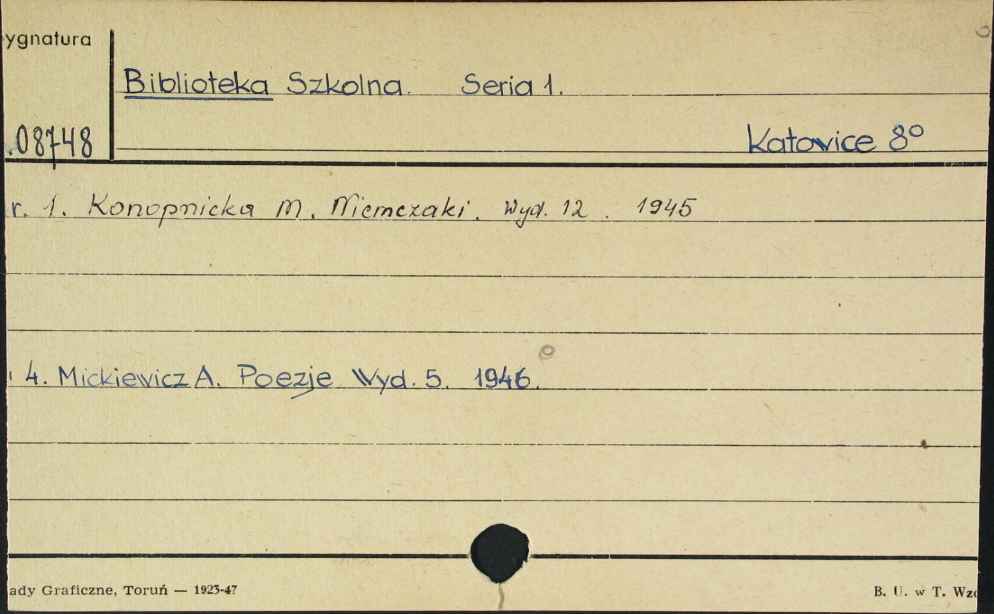 ygnatura
Biblioteka Szkolna. Seria 1.
.08748
Katowice 8°
r. 1. Konopnicka M. Niemczaki. Wyd. 12. 1945
4. Mickiewicz A. Poezje Wyd. 5. 1946.
ady Graficzne, Toruń — 1923-47
B. U. w T. Wzo